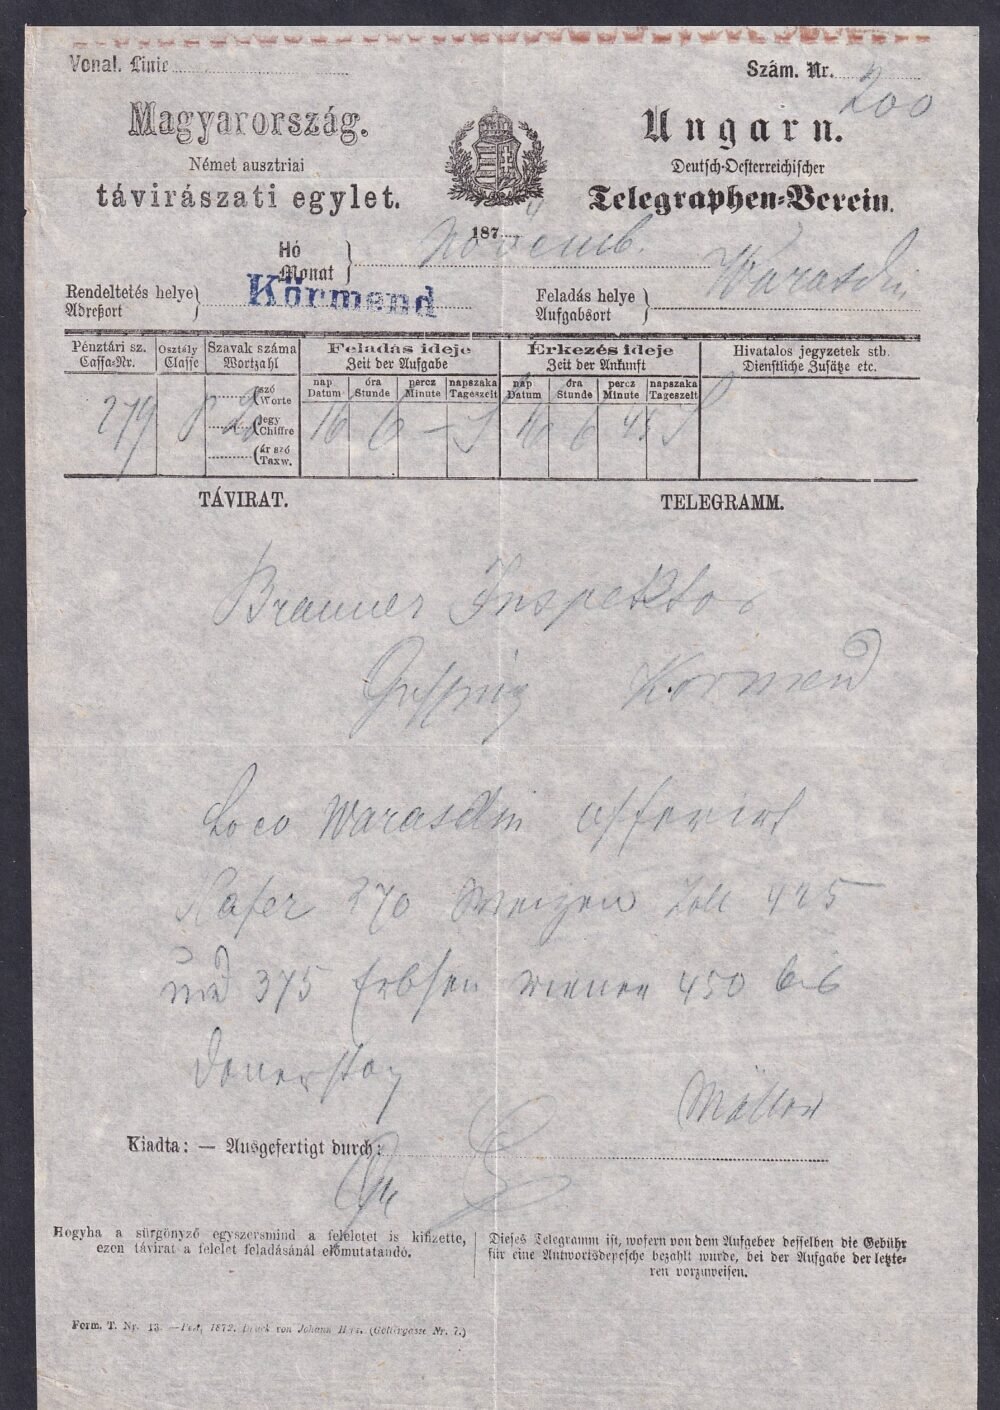 Vonal. Linie
Szám. Nr. 200
Magyarország.
Német ausztriai
távirászati egylet.
Ungarn.
Deutsch-Oesterreichischer
Telegraphen-Verein.
187
Hó
Monat
Novemb.
Rendeltetés helye
Adreßort
Körmend
Feladás helye
Aufgabsort
Warasdin
Pénztári sz.
Cassa-Nr.
Osztály
Classe
Szavak száma
Wortzahl
Feladás ideje
Zeit der Aufgabe
Érkezés ideje
Zeit der Ankunft
Hivatalos jegyzetek stb.
Dienstliche Zusätze etc.
szó
Worte
jegy
Chiffre
ár szó
Taxw.
nap
Datum
óra
Stunde
percz
Minute
napszaka
Tageszeit
nap
Datum
óra
Stunde
percz
Minute
napszaka
Tageszeit
279 8 20 16 6 — 16 6 45
TÁVIRAT.
TELEGRAMM.
Brauner Inspektor
Güssing Körmend
Loco Warasdin offerirt
Hafer 270 Weizen Zoll 425
und 375 Erbsen wiener 450 bis
Donerstag
Kiadta: — Ausgefertigt durch:
Hogyha a sürgönyző egyszersmind a feleletet is kifizette,
ezen távirat a felelet feladásánál előmutatandó.
Dieses Telegramm ist, wofern von dem Aufgeber desselben die Gebühr
für eine Antwortsdepesche bezahlt wurde, bei der Aufgabe der letzte-
ren vorzuweisen.
Form. T. Nr. 13. — Pest, 1872. Druck von Johann (Göttergasse Nr. 7.)